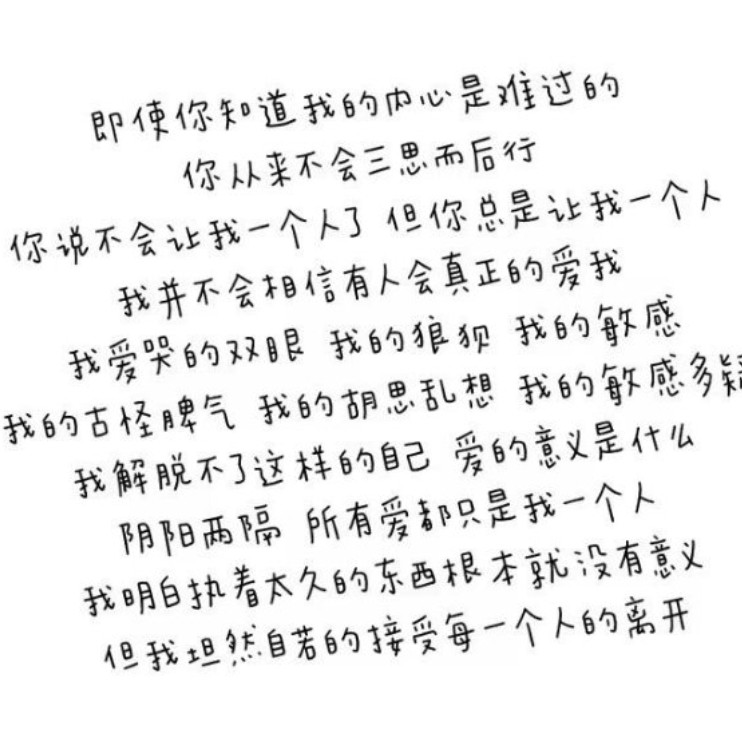 即使你知道我的内心是难过的
你从来不会三思而后行
你说不会让我一个人了 但你总是让我一个人
我并不会相信有人会真正的爱我
我爱哭的双眼 我的狼狈 我的敏感
我的古怪脾气 我的胡思乱想 我的敏感多疑
我解脱不了这样的自己 爱的意义是什么
阴阳两隔 所有爱都只是我一个人
我明白执着太久的东西根本就没有意义
但我坦然自若的接受每一个人的离开